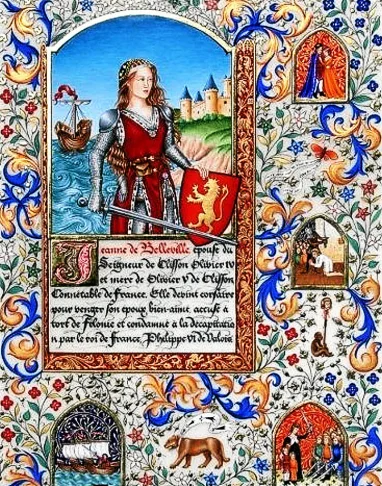 Jeanne de Belleville épouse du
Seigneur de Clisson Olivier IV
et mère de Olivier V de Clisson
Connétable de France. Elle devint corsaire
pour venger son époux bien-aimé accusé à
tort de félonie et condamné à la décapitatio
n par le roi de France, Philippe VI de Valois.